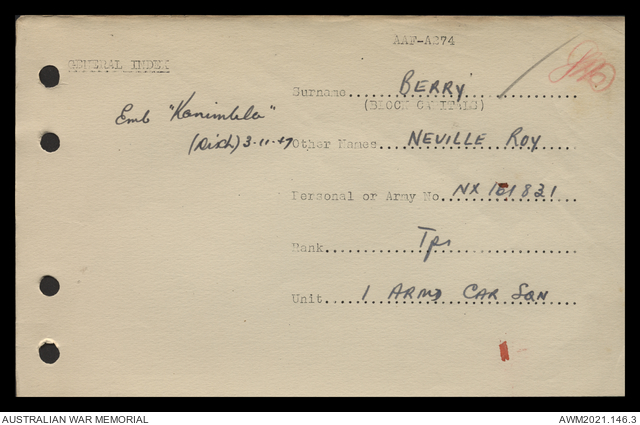 AAF-A274
GENERAL INDEX
Surname...BERRY
(BLOCK CAPITALS)
Emb "Kanimbla"
(Disch) 3-11-47
Other Names...NEVILLE ROY
Personal or Army No...NX 831
Rank...Tpr
Unit...1 ARMD CAR SQN
AUSTRALIAN WAR MEMORIAL
AWM2021.146.3